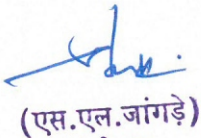 (एस.एल.जांगड़े)